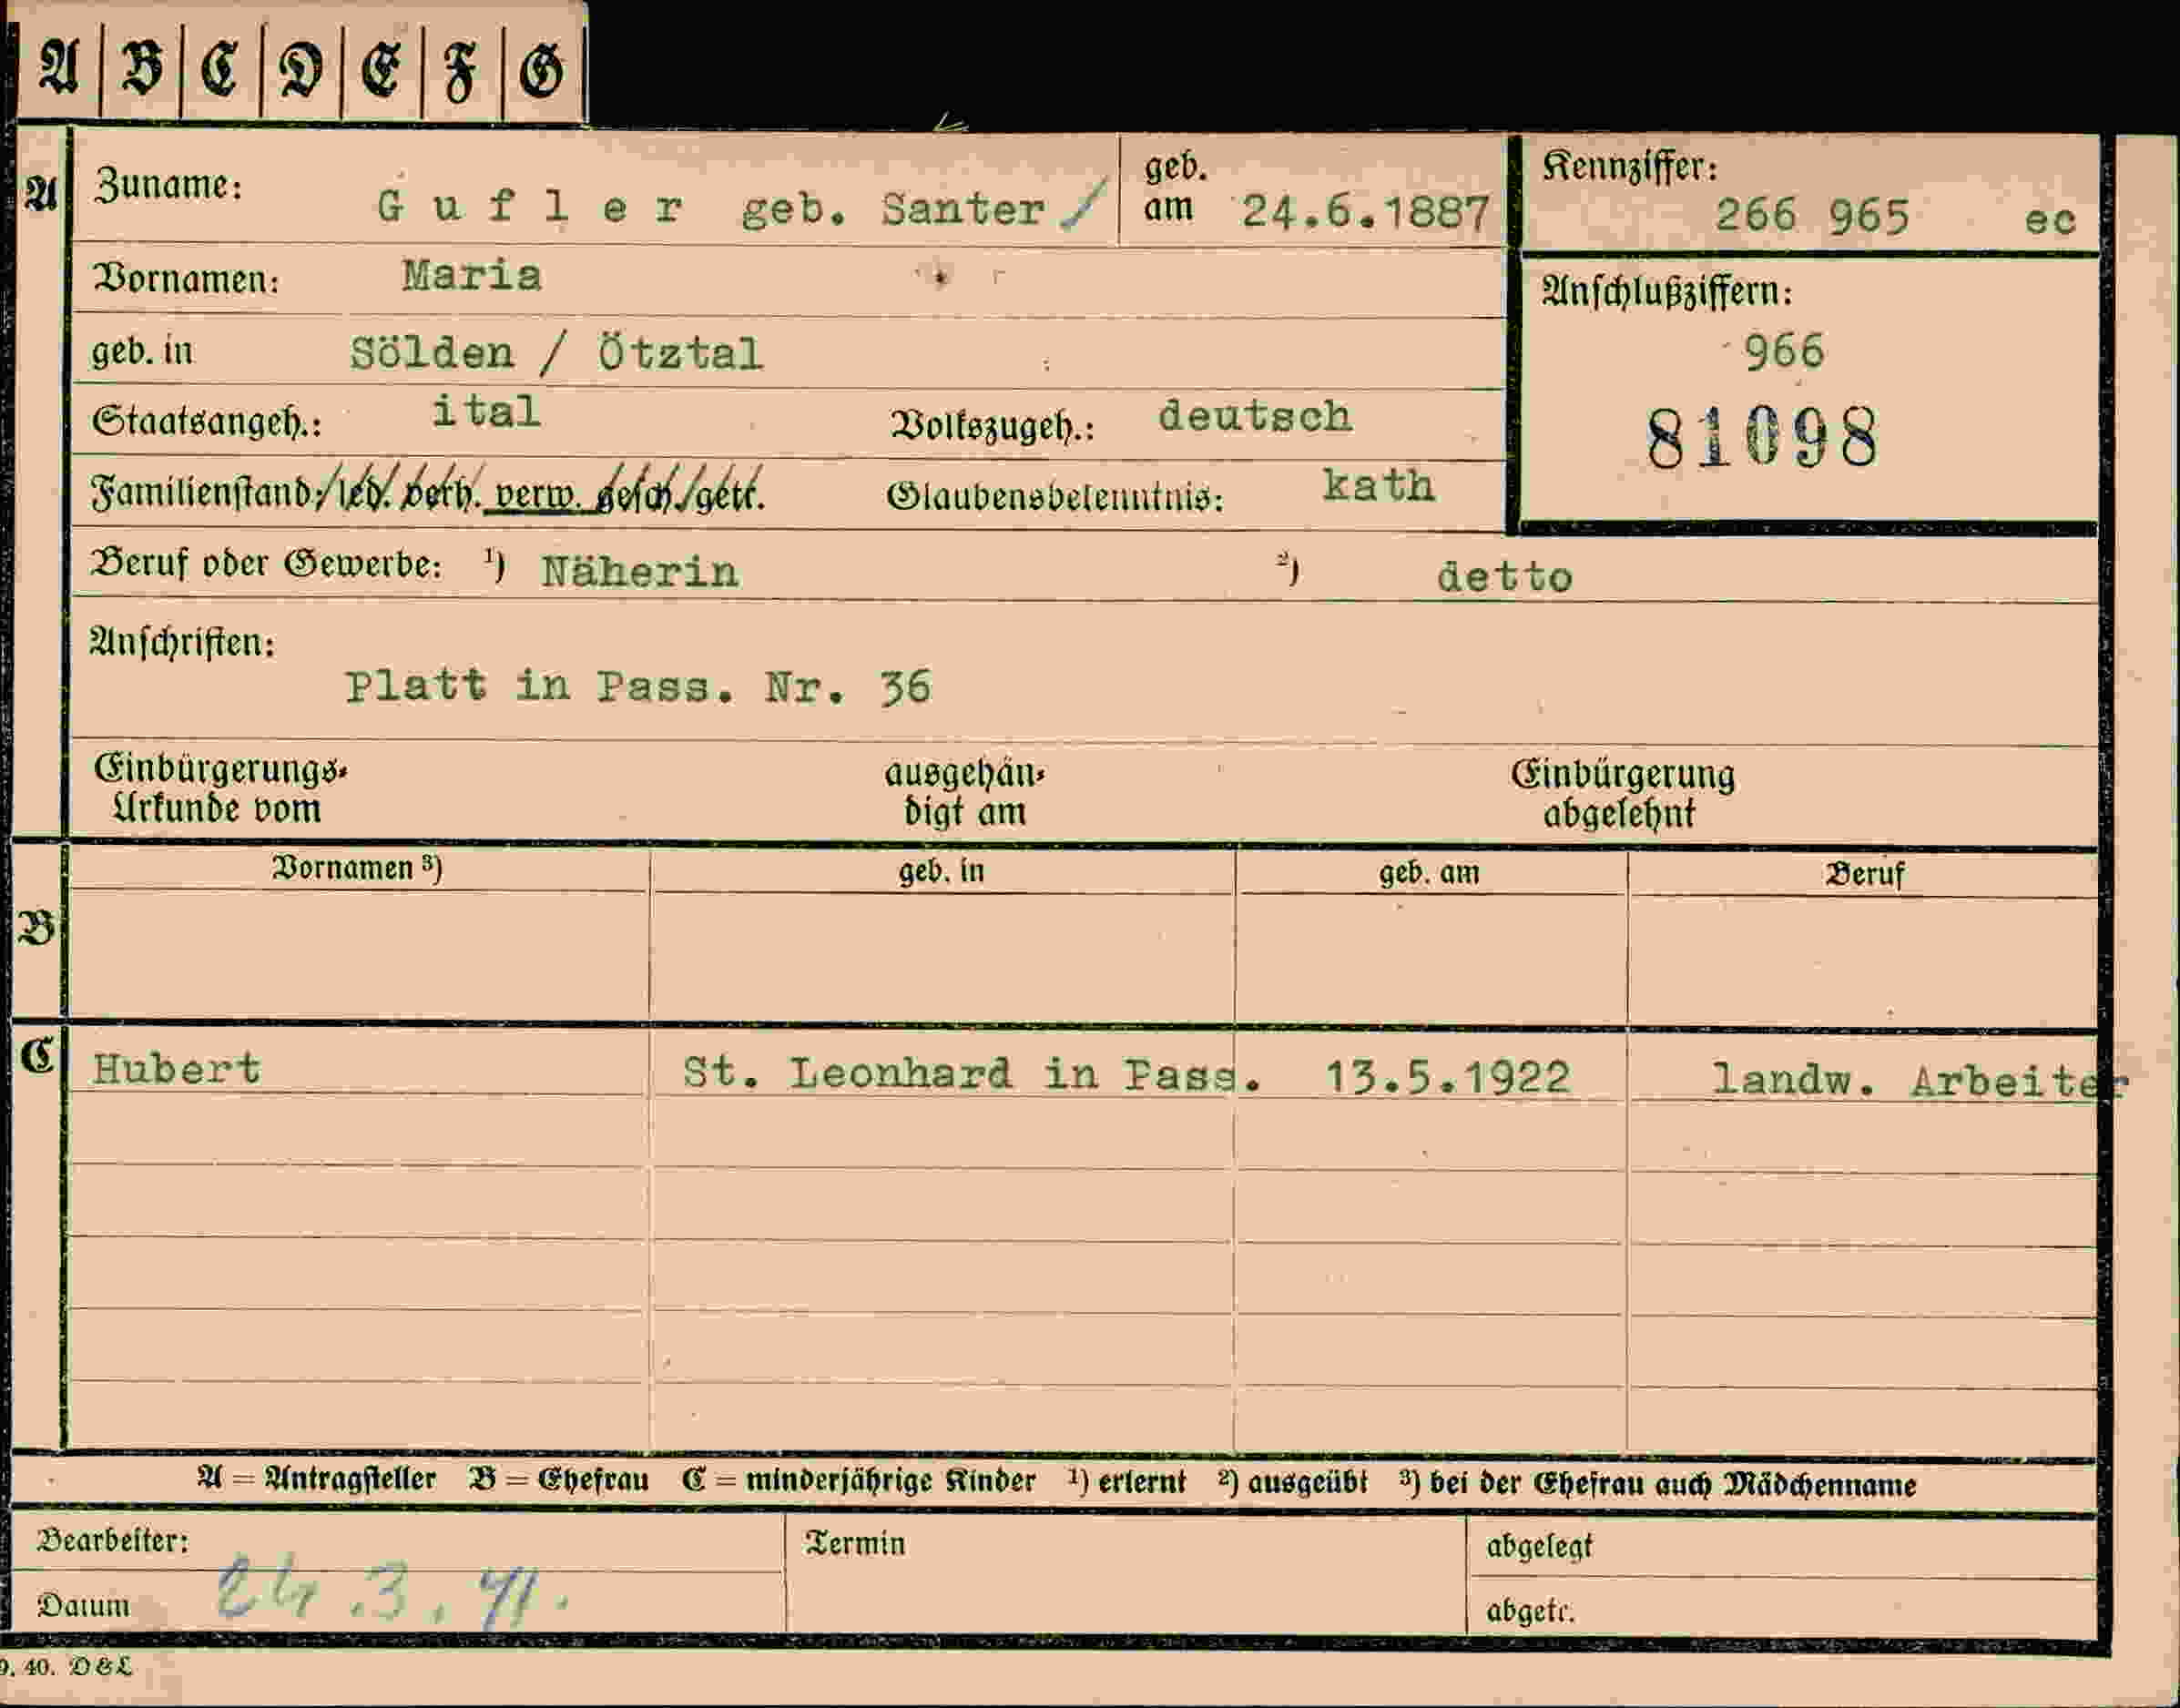 A B C D E F G
A Zuname: Gufler geb. Santer / geb. am 24.6.1887 Kennziffer: 266 965 ec
Vornamen: Maria
Anschlußziffern:
geb. in Sölden / Ötztal 966
Staatsangeh.: ital Volkszugeh.: deutsch 81098
Familienstand: led. verh. verw. gesch. getr. Glaubensbekenntnis: kath
Beruf oder Gewerbe: ¹) Näherin ²) detto
Anschriften:
Platt in Pass. Nr. 36
Einbürgerungs- ausgehän- Einbürgerung
Urkunde vom digt am abgelehnt
Vornamen ³) geb. in geb. am Beruf
B
C Hubert St. Leonhard in Pass. 13.5.1922 landw. Arbeiter
A = Antragsteller B = Ehefrau C = minderjährige Kinder ¹) erlernt ²) ausgeübt ³) bei der Ehefrau auch Mädchenname
Bearbeiter: Termin abgelegt
Datum 24.3.41. abgetr.
9. 40. D & L